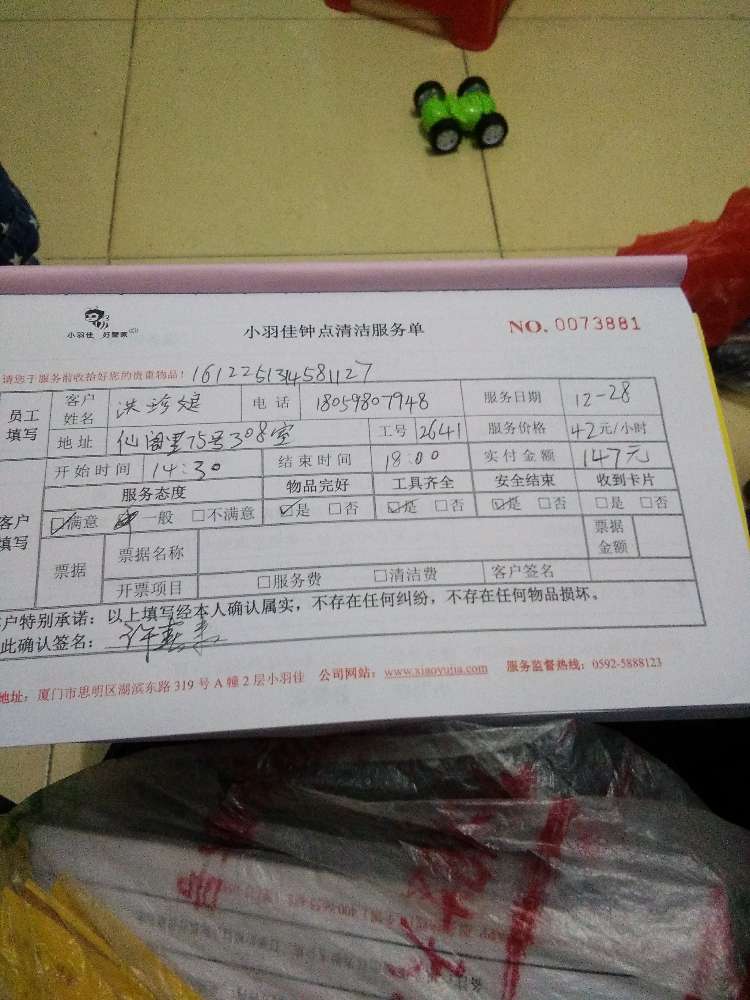 小羽佳 好管家
小羽佳钟点清洁服务单
NO. 0073881
请您于服务前收拾好您的贵重物品！
1612251314581127
员工填写 客户姓名 洪珍 电话 18059807948 服务日期 12-28
地址 仙阁里75号308室 工号 2641 服务价格 42元/小时
开始时间 14:30 结束时间 18:00 实付金额 147元
客户填写 服务态度 物品完好 工具齐全 安全结束 收到卡片
☑满意 一般 □不满意 ☑是 □否 ☑是 □否 ☑是 □否 □是 □否
票据 票据名称 票据金额
开票项目 □服务费 □清洁费 客户签名
客户特别承诺：以上填写经本人确认属实，不存在任何纠纷，不存在任何物品损坏。
此确认签名：
地址：厦门市思明区湖滨东路 319 号 A 幢 2 层小羽佳 公司网站：www.xiaoyujia.com 服务监督热线：0592-5888123